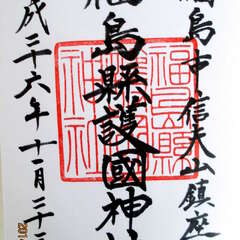 福島市信夫山鎮座
福島縣護國神社
成二十六年十一月
福島縣
神社